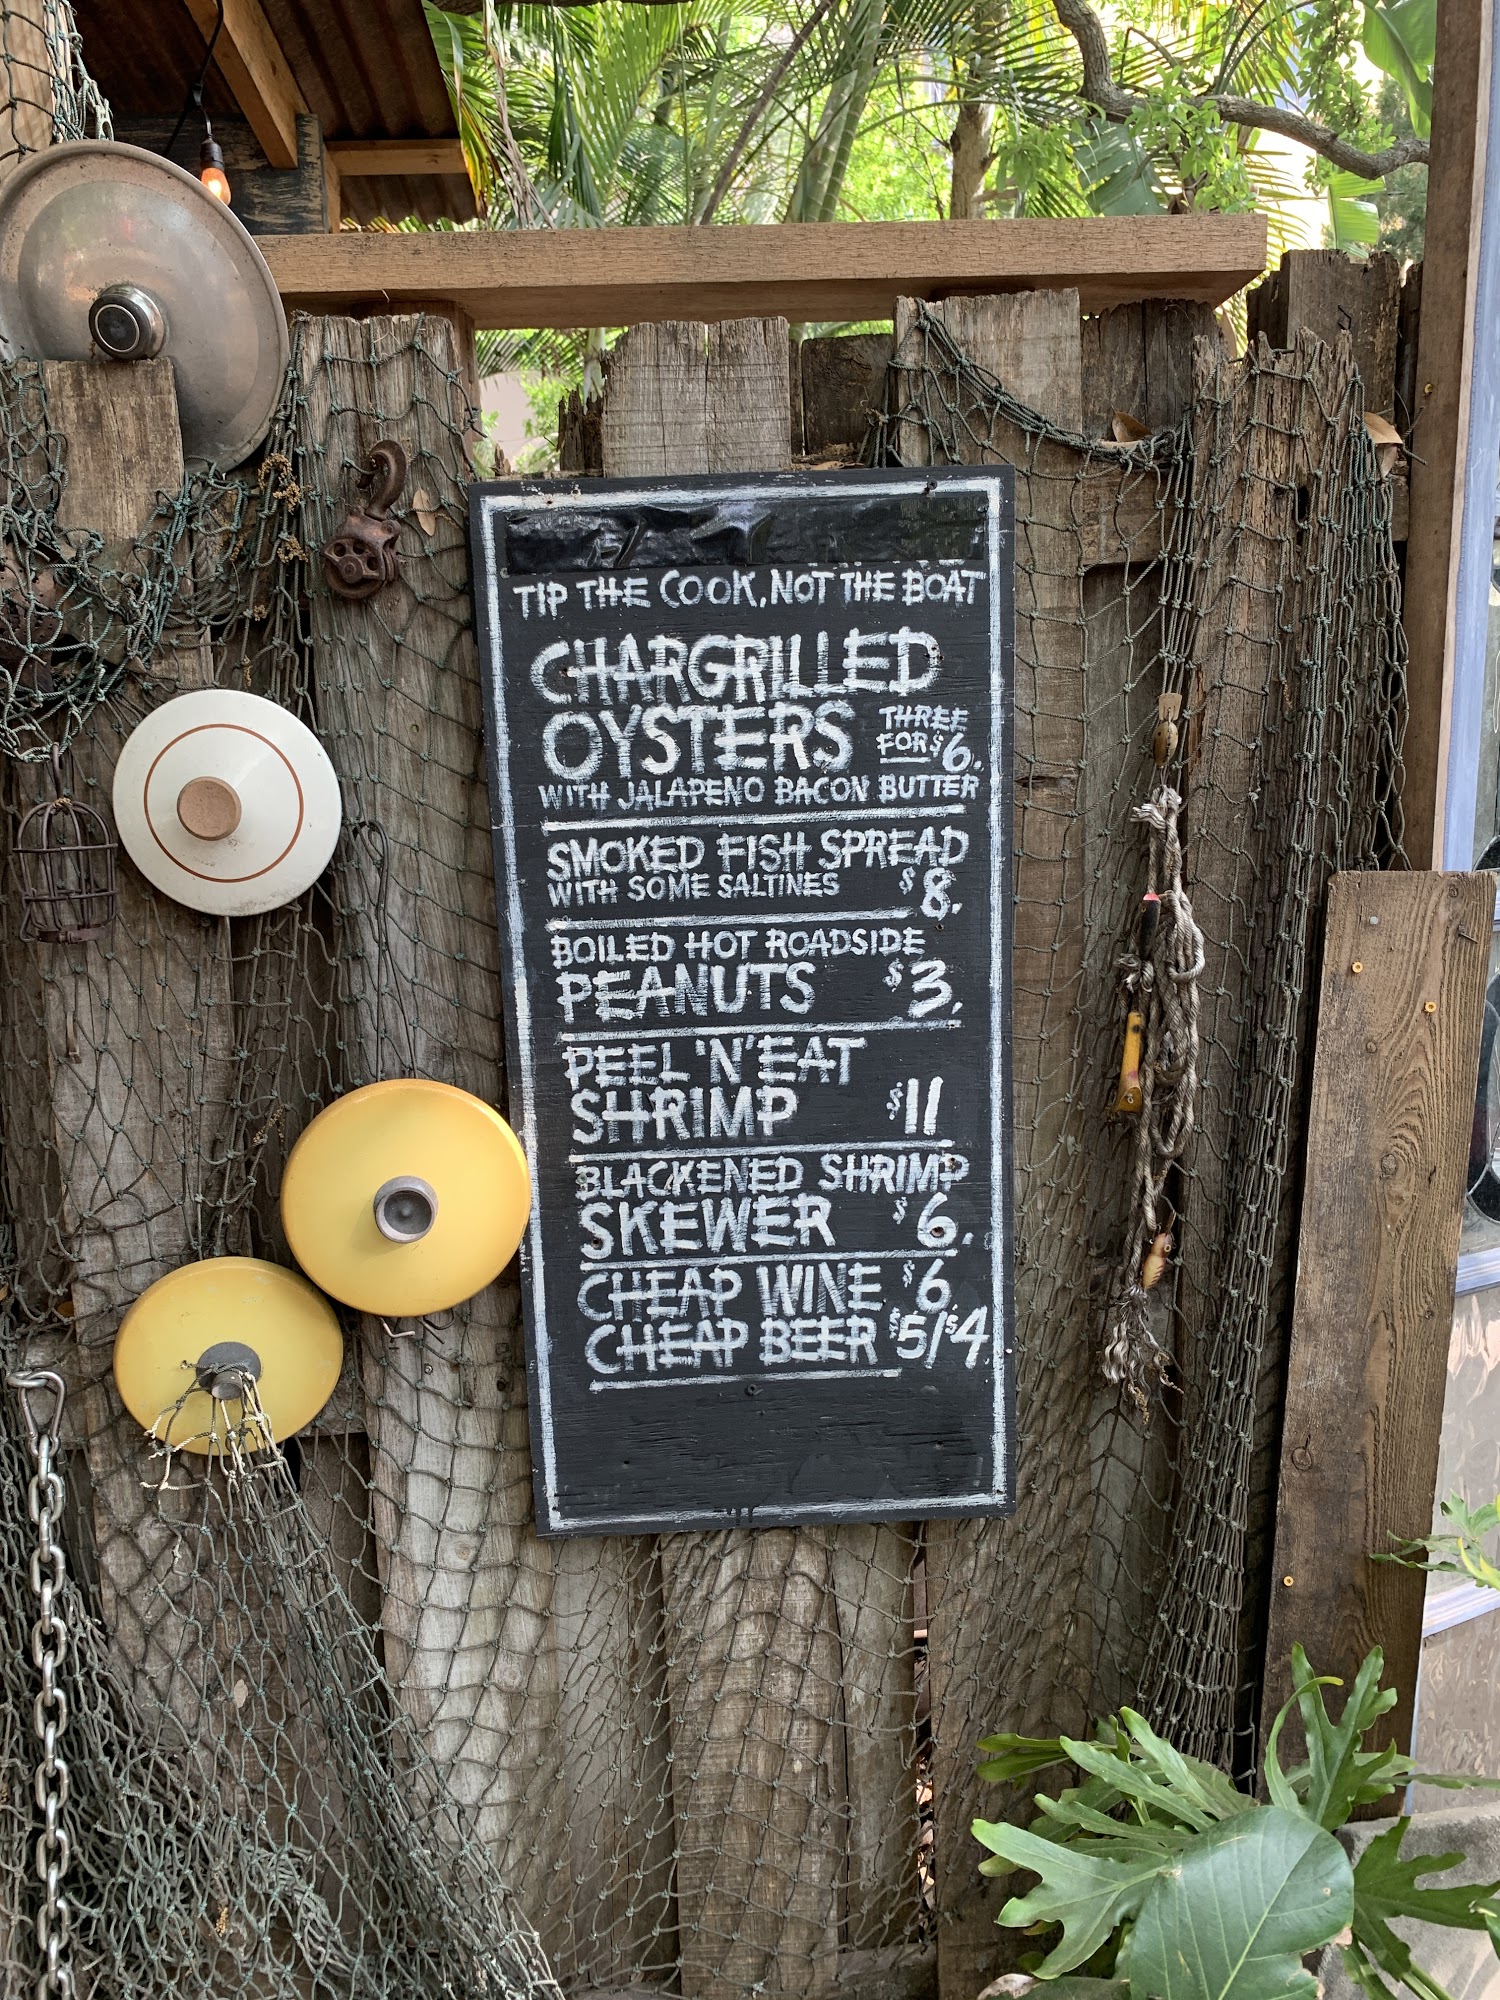 TIP THE COOK, NOT THE BOAT
CHARGRILLED
OYSTERS THREE FOR $6.
WITH JALAPENO BACON BUTTER
SMOKED FISH SPREAD
WITH SOME SALTINES $8.
BOILED HOT ROADSIDE
PEANUTS $3.
PEEL 'N' EAT
SHRIMP $11
BLACKENED SHRIMP
SKEWER $6.
CHEAP WINE $6.
CHEAP BEER $5/$4.